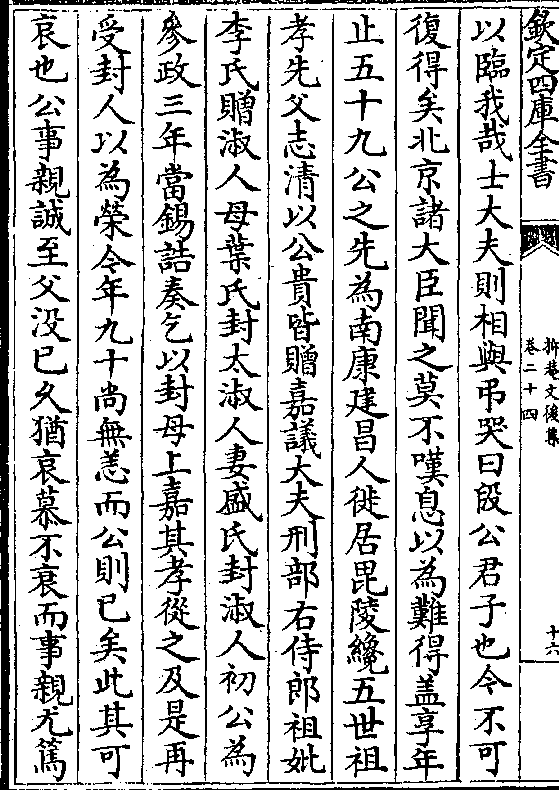 欽定四庫全書
抑菴文後集
卷二十四
十六
以臨我哉士大夫則相與弔哭曰段公君子也今不可
復得矣北京諸大臣聞之莫不嘆息以為難得盖享年
止五十九公之先為南康建昌人徙居毘陵纔五世祖
孝先父志清以公貴皆贈嘉議大夫刑部右侍郎祖妣
李氏贈淑人母葉氏封太淑人妻盛氏封淑人初公為
參政三年當錫誥奏乞以封母上嘉其孝從之及是再
受封人以為榮今年九十尚無恙而公則已矣此其可
哀也公事親誠至父没已久猶哀慕不衰而事親尤篤